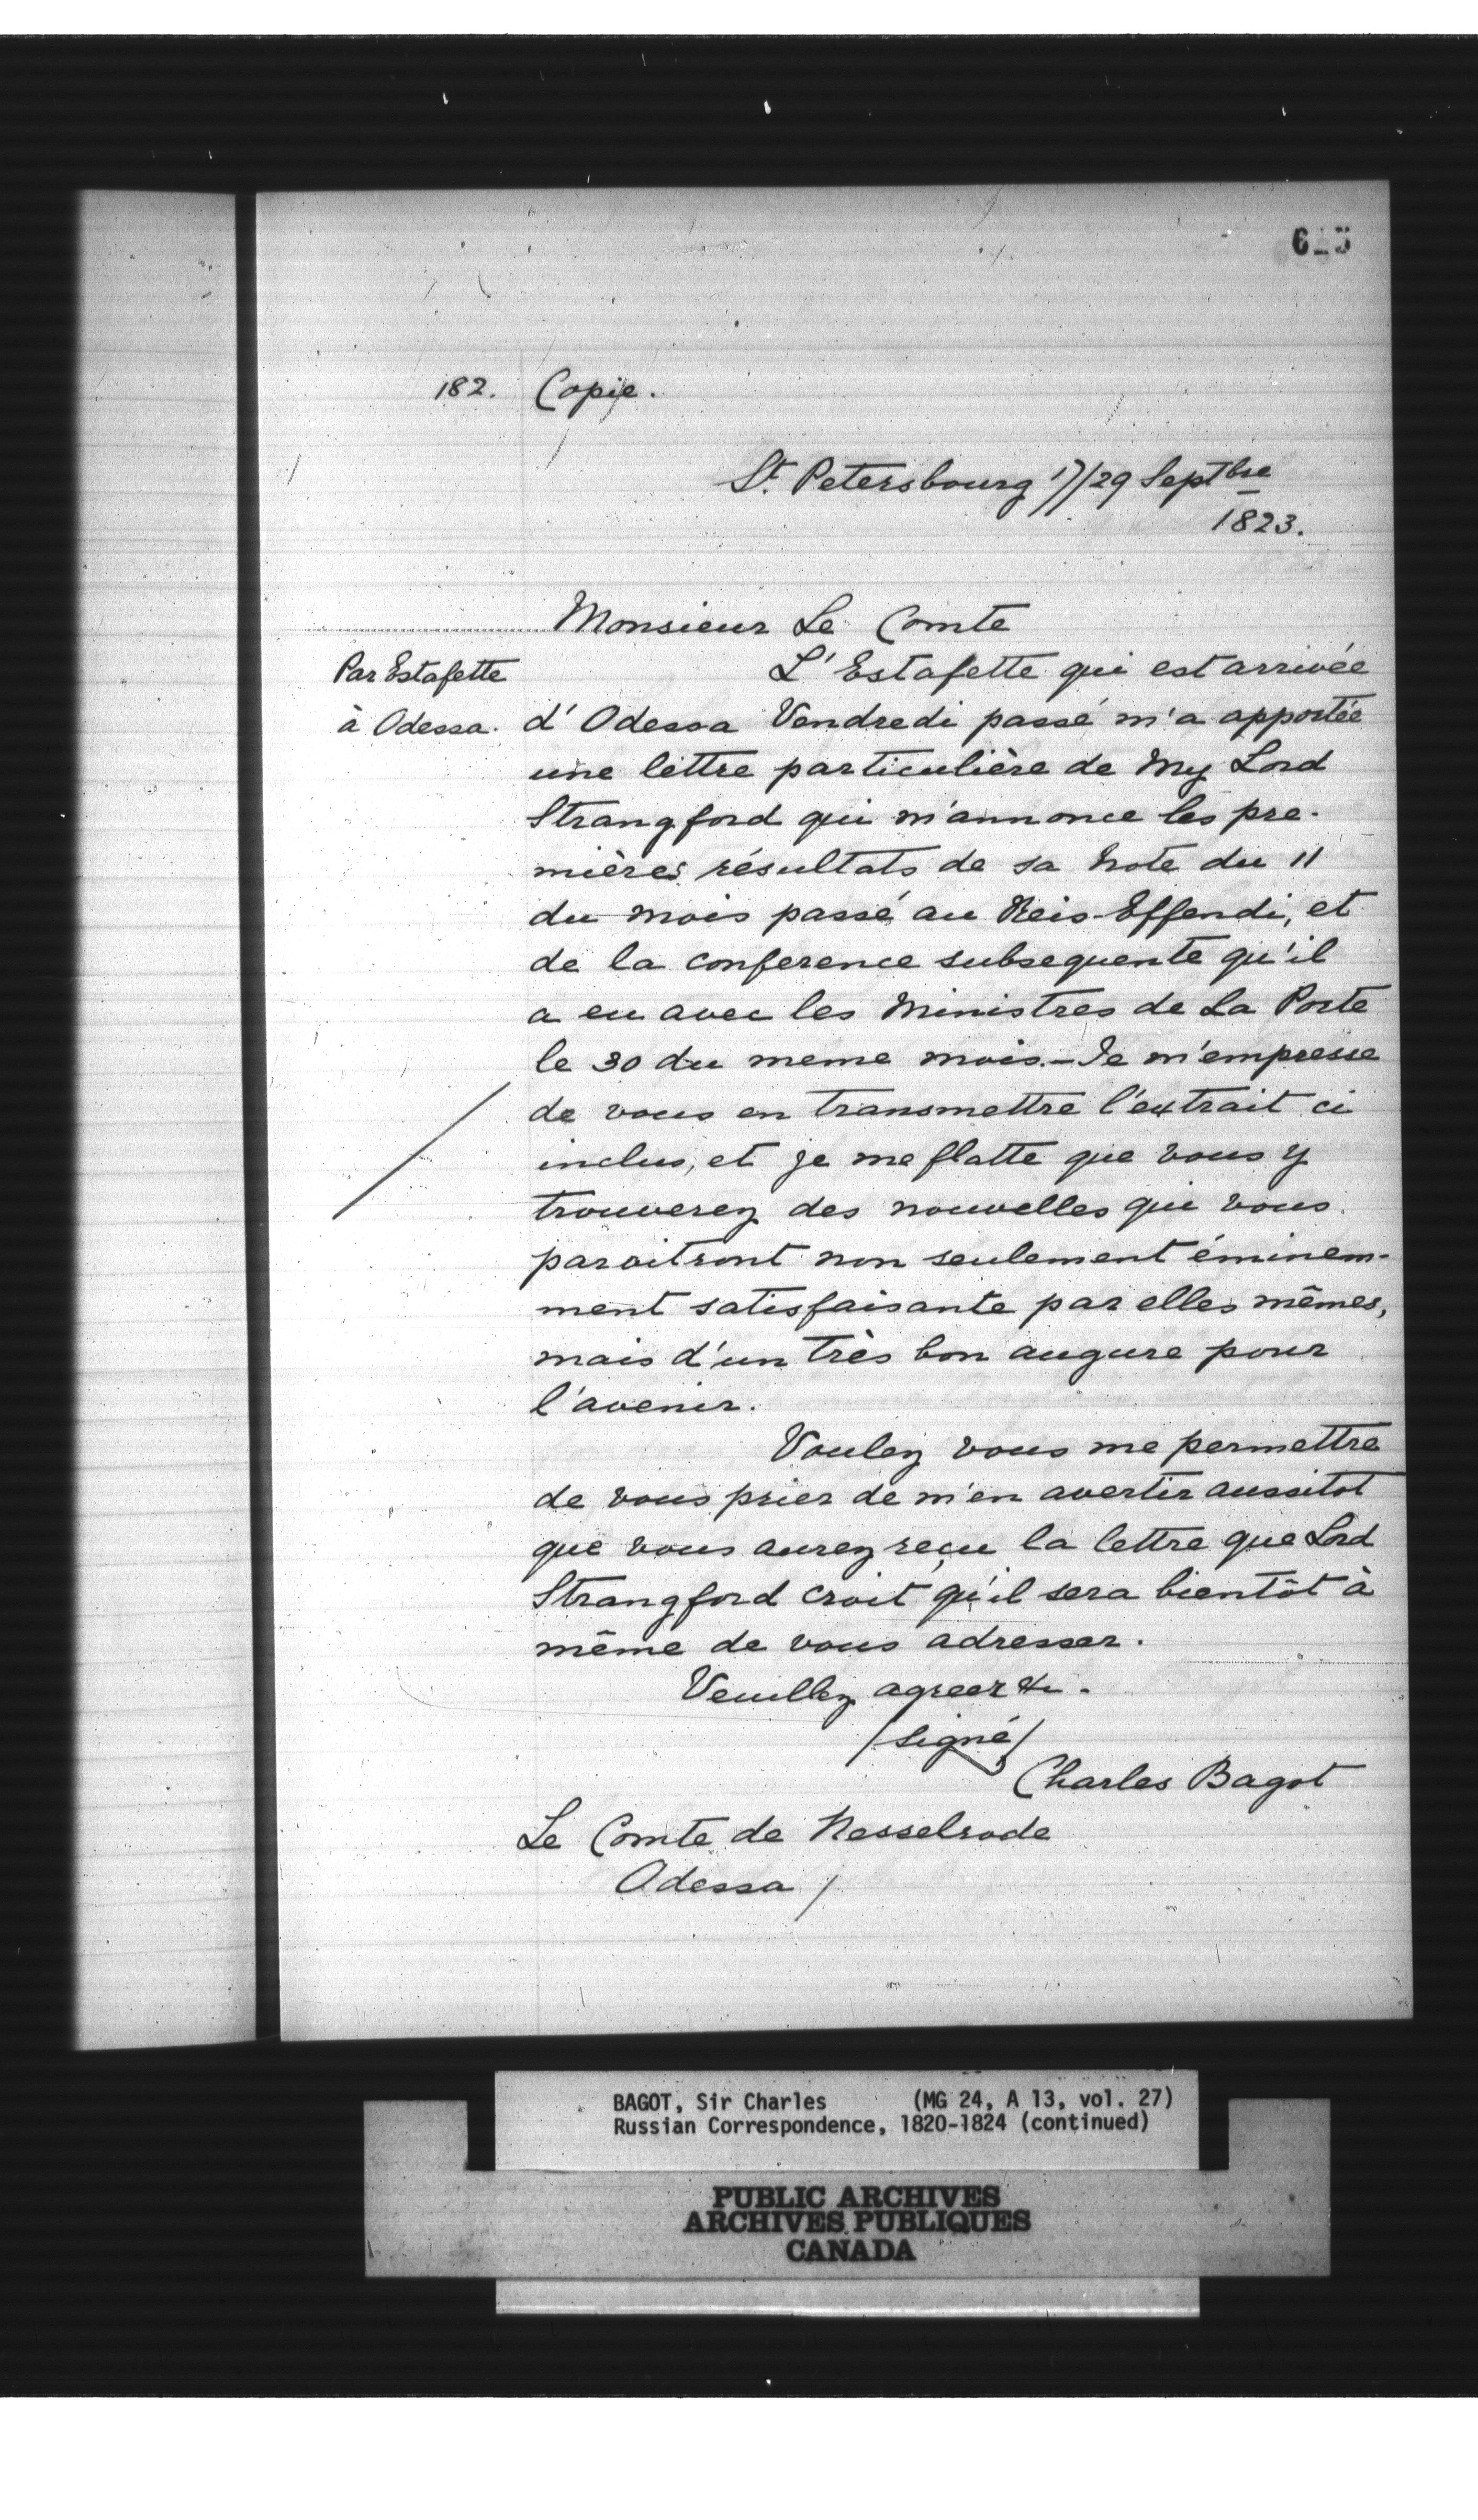 182. Copie.
St. Petersbourg 17/29 Septbre
1823.
Monsieur Le Comte
Par Estafette
à Odessa.
L'Estafette qui est arrivée
d'Odessa Vendredi passé m'a apportée
une lettre particulière de My Lord
Strangford qui m'annonce les pre-
mières résultats de sa Note du 11
du mois passé au Reis-Effendi, et
de la conference subsequente qu'il
a eu avec les Ministres de La Porte
le 30 du meme mois.- Je m'empresse
de vous en transmettre l'extrait ci
inclus, et je me flatte que vous y
trouverez des nouvelles qui vous
paroitront non seulement éminem-
ment satisfaisante par elles mêmes,
mais d'un très bon augure pour
l'avenir.
Voulez vous me permettre
de vous prier de m'en avertir aussitot
que vous aurez reçu la lettre que Lord
Strangford croit qu'il sera bientôt à
même de vous adresser.
Veuillez agreer &c.
/signé/
Charles Bagot
Le Comte de Nesselrode
Odessa /
BAGOT, Sir Charles (MG 24, A 13, vol. 27)
Russian Correspondence, 1820-1824 (continued)
PUBLIC ARCHIVES
ARCHIVES PUBLIQUES
CANADA